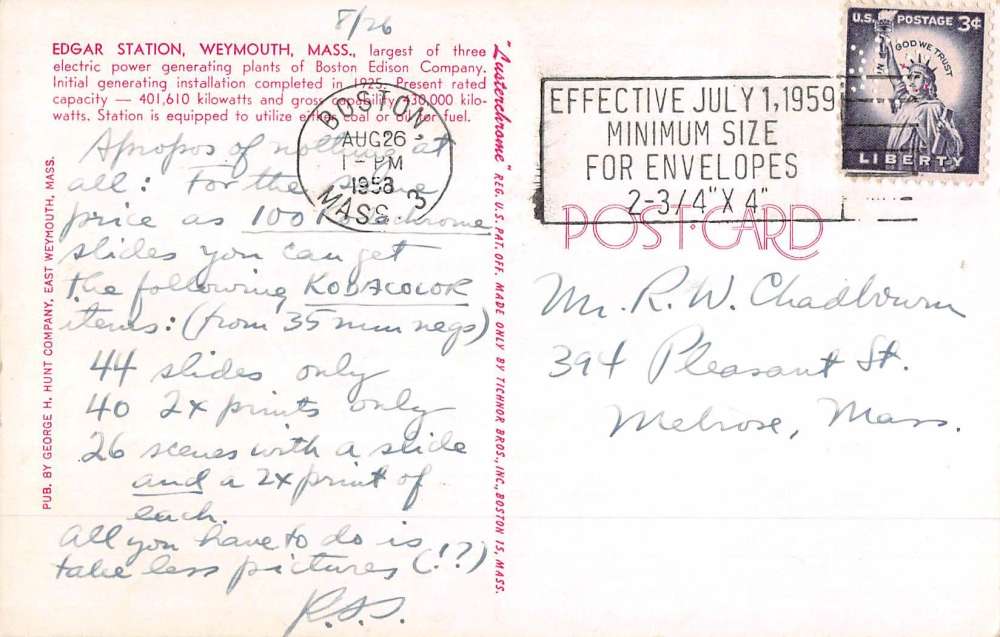 8/26
EDGAR STATION, WEYMOUTH, MASS., largest of three
electric power generating plants of Boston Edison Company.
Initial generating installation completed in 1925. Present rated
capacity — 401,610 kilowatts and gross capability 430,000 kilo-
watts. Station is equipped to utilize either coal or oil for fuel.
Apropos of nothing at
all: For the same
price as 100 Kodachrome
slides you can get
the following KODACOLOR
items: (from 35 mm negs)
44 slides only
40 2x prints only
26 scenes with a slide
and a 2x print of
each.
All you have to do is
take less pictures (!?)
R.S.S.
PUB. BY GEORGE H. HUNT COMPANY, EAST WEYMOUTH, MASS.
"Lusterchrome" REG. U.S. PAT. OFF. MADE ONLY BY TICHNOR BROS., INC., BOSTON 15, MASS.
BOSTON
AUG 26
1 - PM
1958
MASS. 3
EFFECTIVE JULY 1, 1959
MINIMUM SIZE
FOR ENVELOPES
2-3/4" X 4"
U.S. POSTAGE 3¢
IN GOD WE TRUST
LIBERTY
POST CARD
Mr. R. W. Chadbourn
394 Pleasant St.
Melrose, Mass.